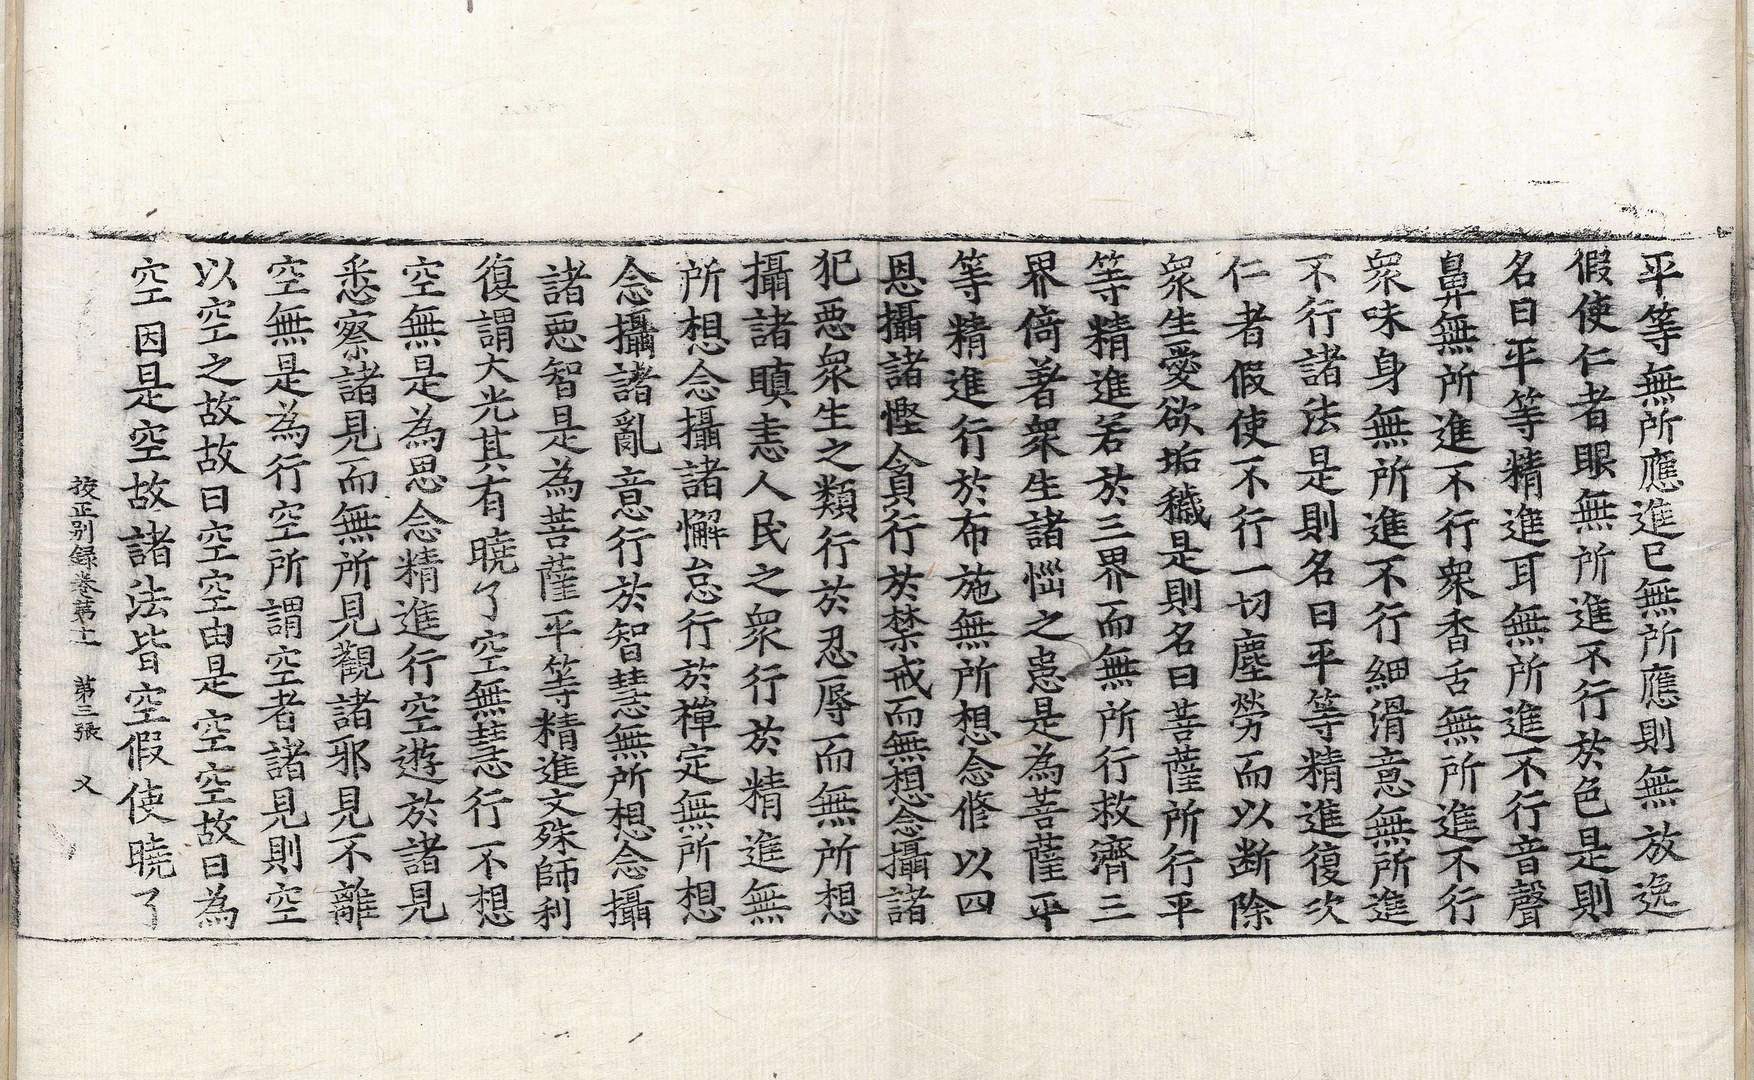 平等無所應進已無所應則無放逸
假使仁者眼無所進不行於色是則
名曰平等精進耳無所進不行音聲
鼻無所進不行衆香舌無所進不行
衆味身無所進不行細滑意無所進
不行諸法是則名曰平等精進復次
仁者假使不行一切塵勞而以斷除
衆生愛欲垢穢是則名曰菩薩所行平
等精進若於三界而無所行救濟三
界倚著衆生諸惱之患是為菩薩平
等精進行於布施無所想念修以四
恩攝諸慳貪行於禁戒而無想念攝諸
犯惡衆生之類行於忍辱而無所想
攝諸瞋恚人民之衆行於精進無
所想念攝諸懈怠行於禪定無所想
念攝諸亂意行於智慧無所想念攝
諸惡智是為菩薩平等精進文殊師利
復謂大光其有曉了空無慧行不想
空無是為思念精進行空遊於諸見
悉察諸見而無所見觀諸邪見不離
空無是為行空所謂空者諸見則空
以空之故故曰空空由是空空故曰為
空因是空故諸法皆空假使曉了
挍正別録卷第十一　第三張　又